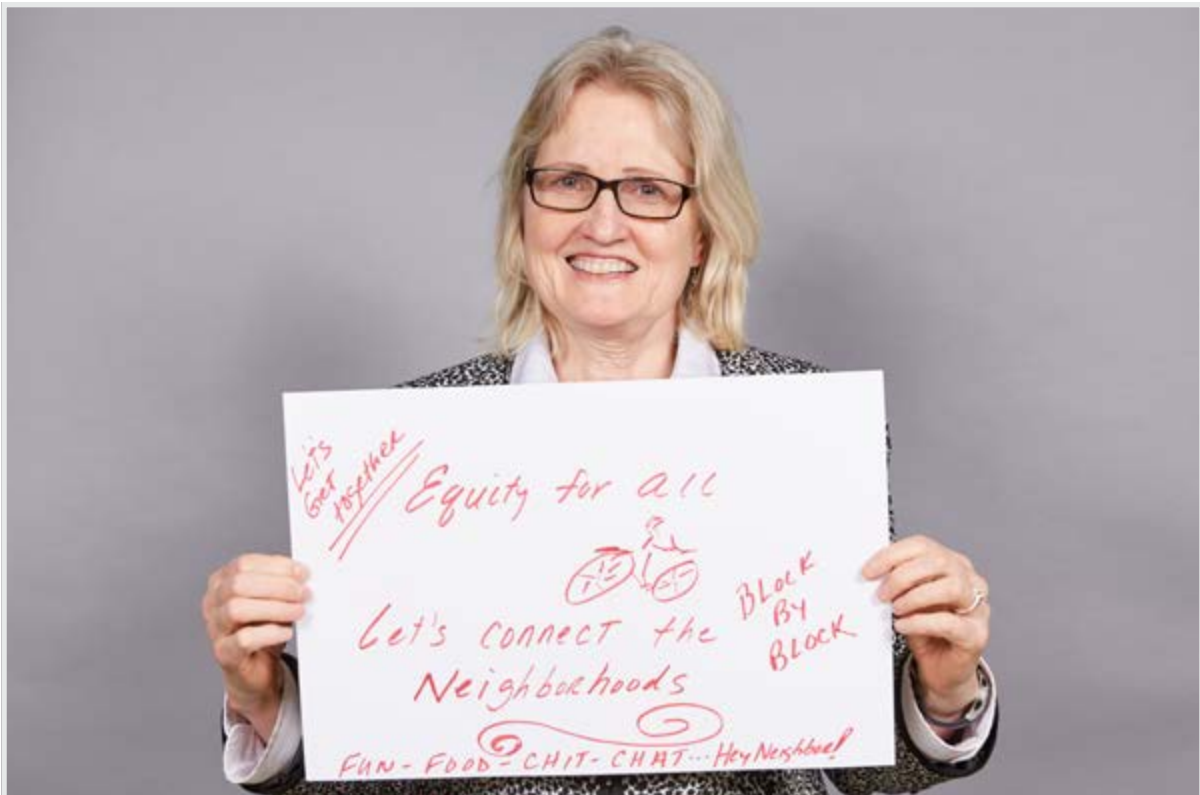 Let's
Get
together
Equity for all
Let's connect the
Neighborhoods
BLOCK
BY
BLOCK
FUN - FOOD - CHIT - CHAT... Hey Neighbor!